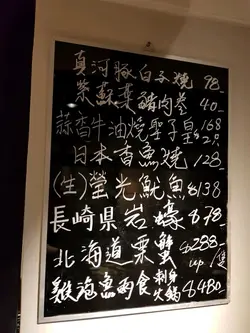 真河豚白子燒 98-
紫蘇葉豬肉卷 40-
蒜香牛油燒聖子皇 $168 2只
日本香魚燒 128-
(生)螢光魷魚 $138
長崎県岩蠔 $78-
北海道栗蟹 $288- up/隻
雞泡魚兩食 刺身 火鍋 $480-